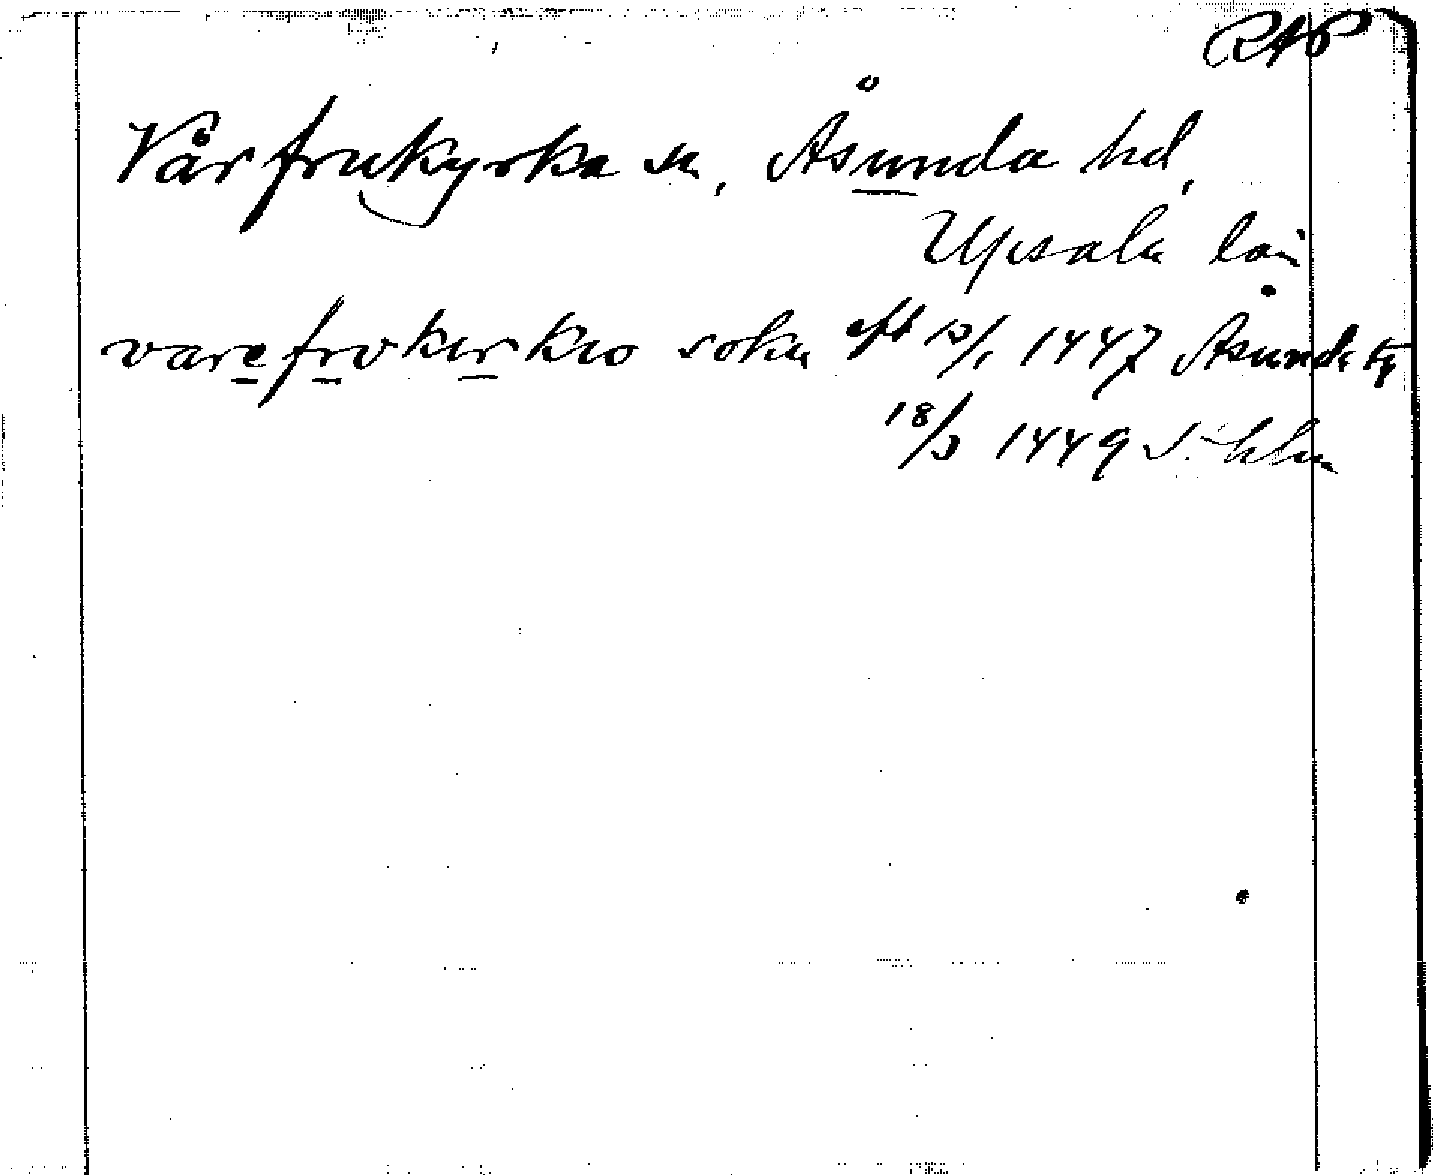 RAP
Vårfrukyrka sn, Åsunda hd,
Upsala län
varefrvkirkio sokn eft 13/1 1447 Åsunda tg
18/3 1449 Sthlm